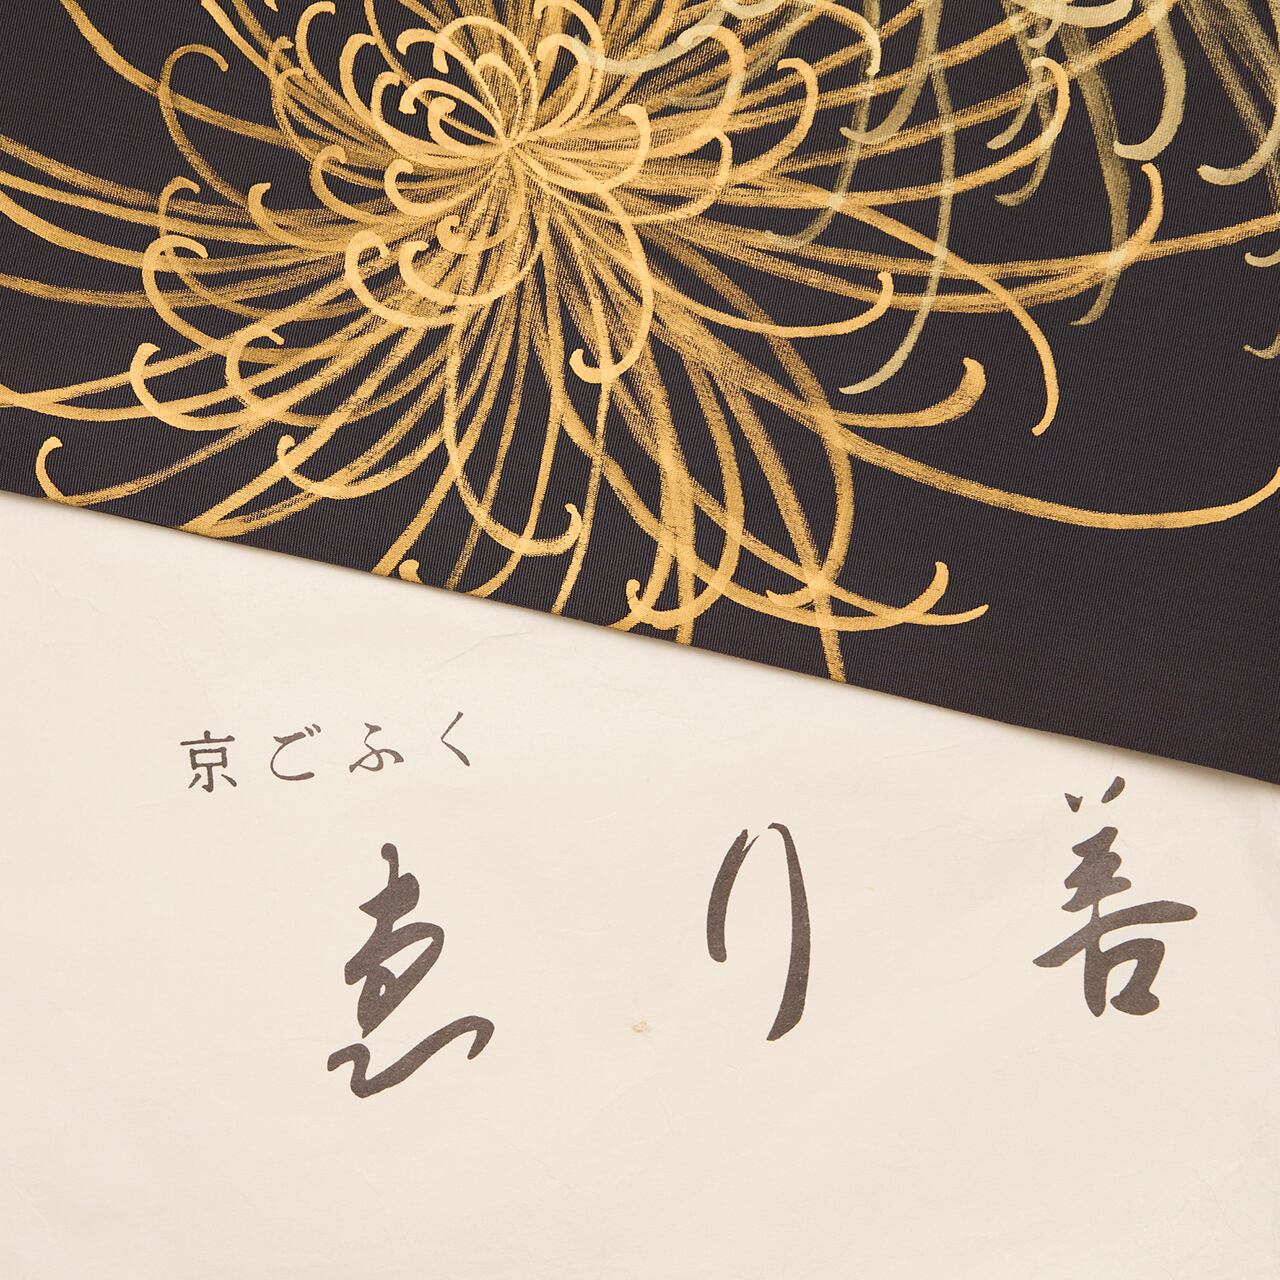 京ごふく
ゑり善